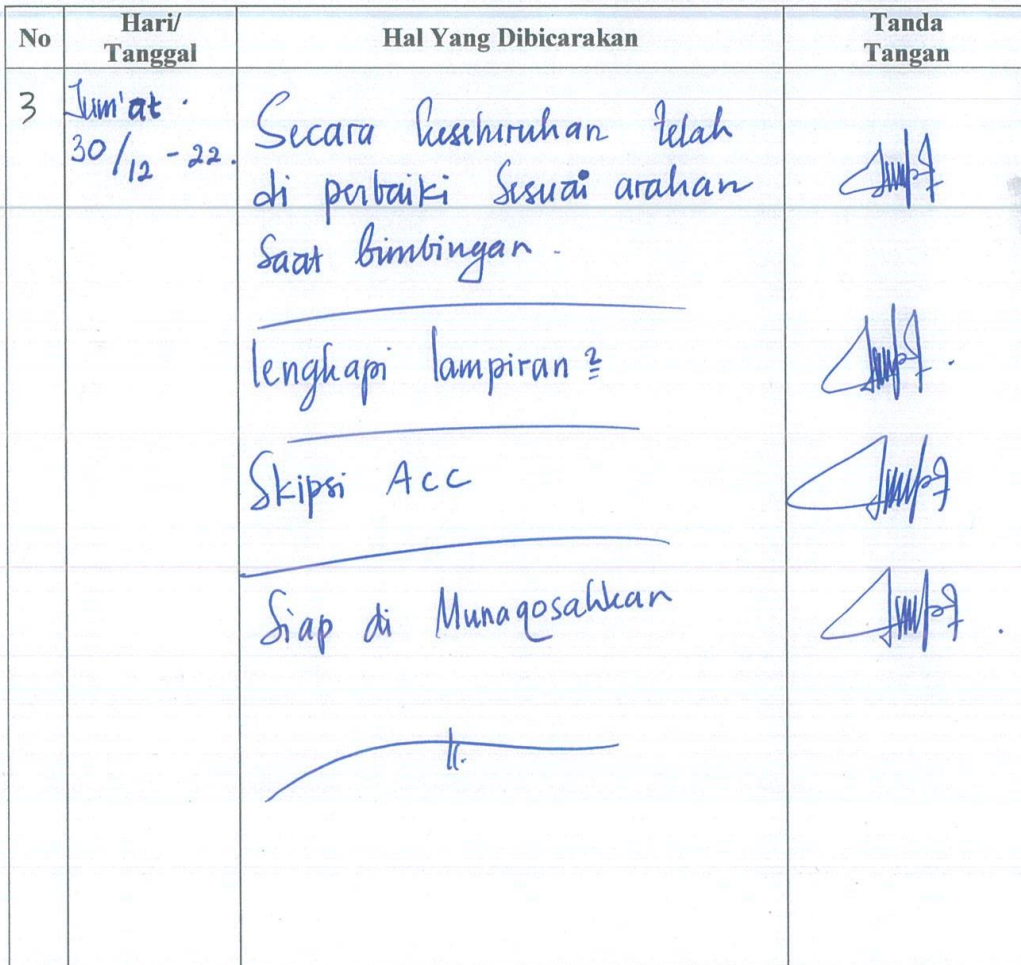 No
Hari/
Tanggal
Hal Yang Dibicarakan
Tanda
Tangan
3
Jum'at.
30/12 - 22.
Secara keseluruhan telah
di perbaiki sesuai arahan
saat bimbingan.
lengkapi lampiran2
Skipsi Acc
Siap di Munaqosahkan